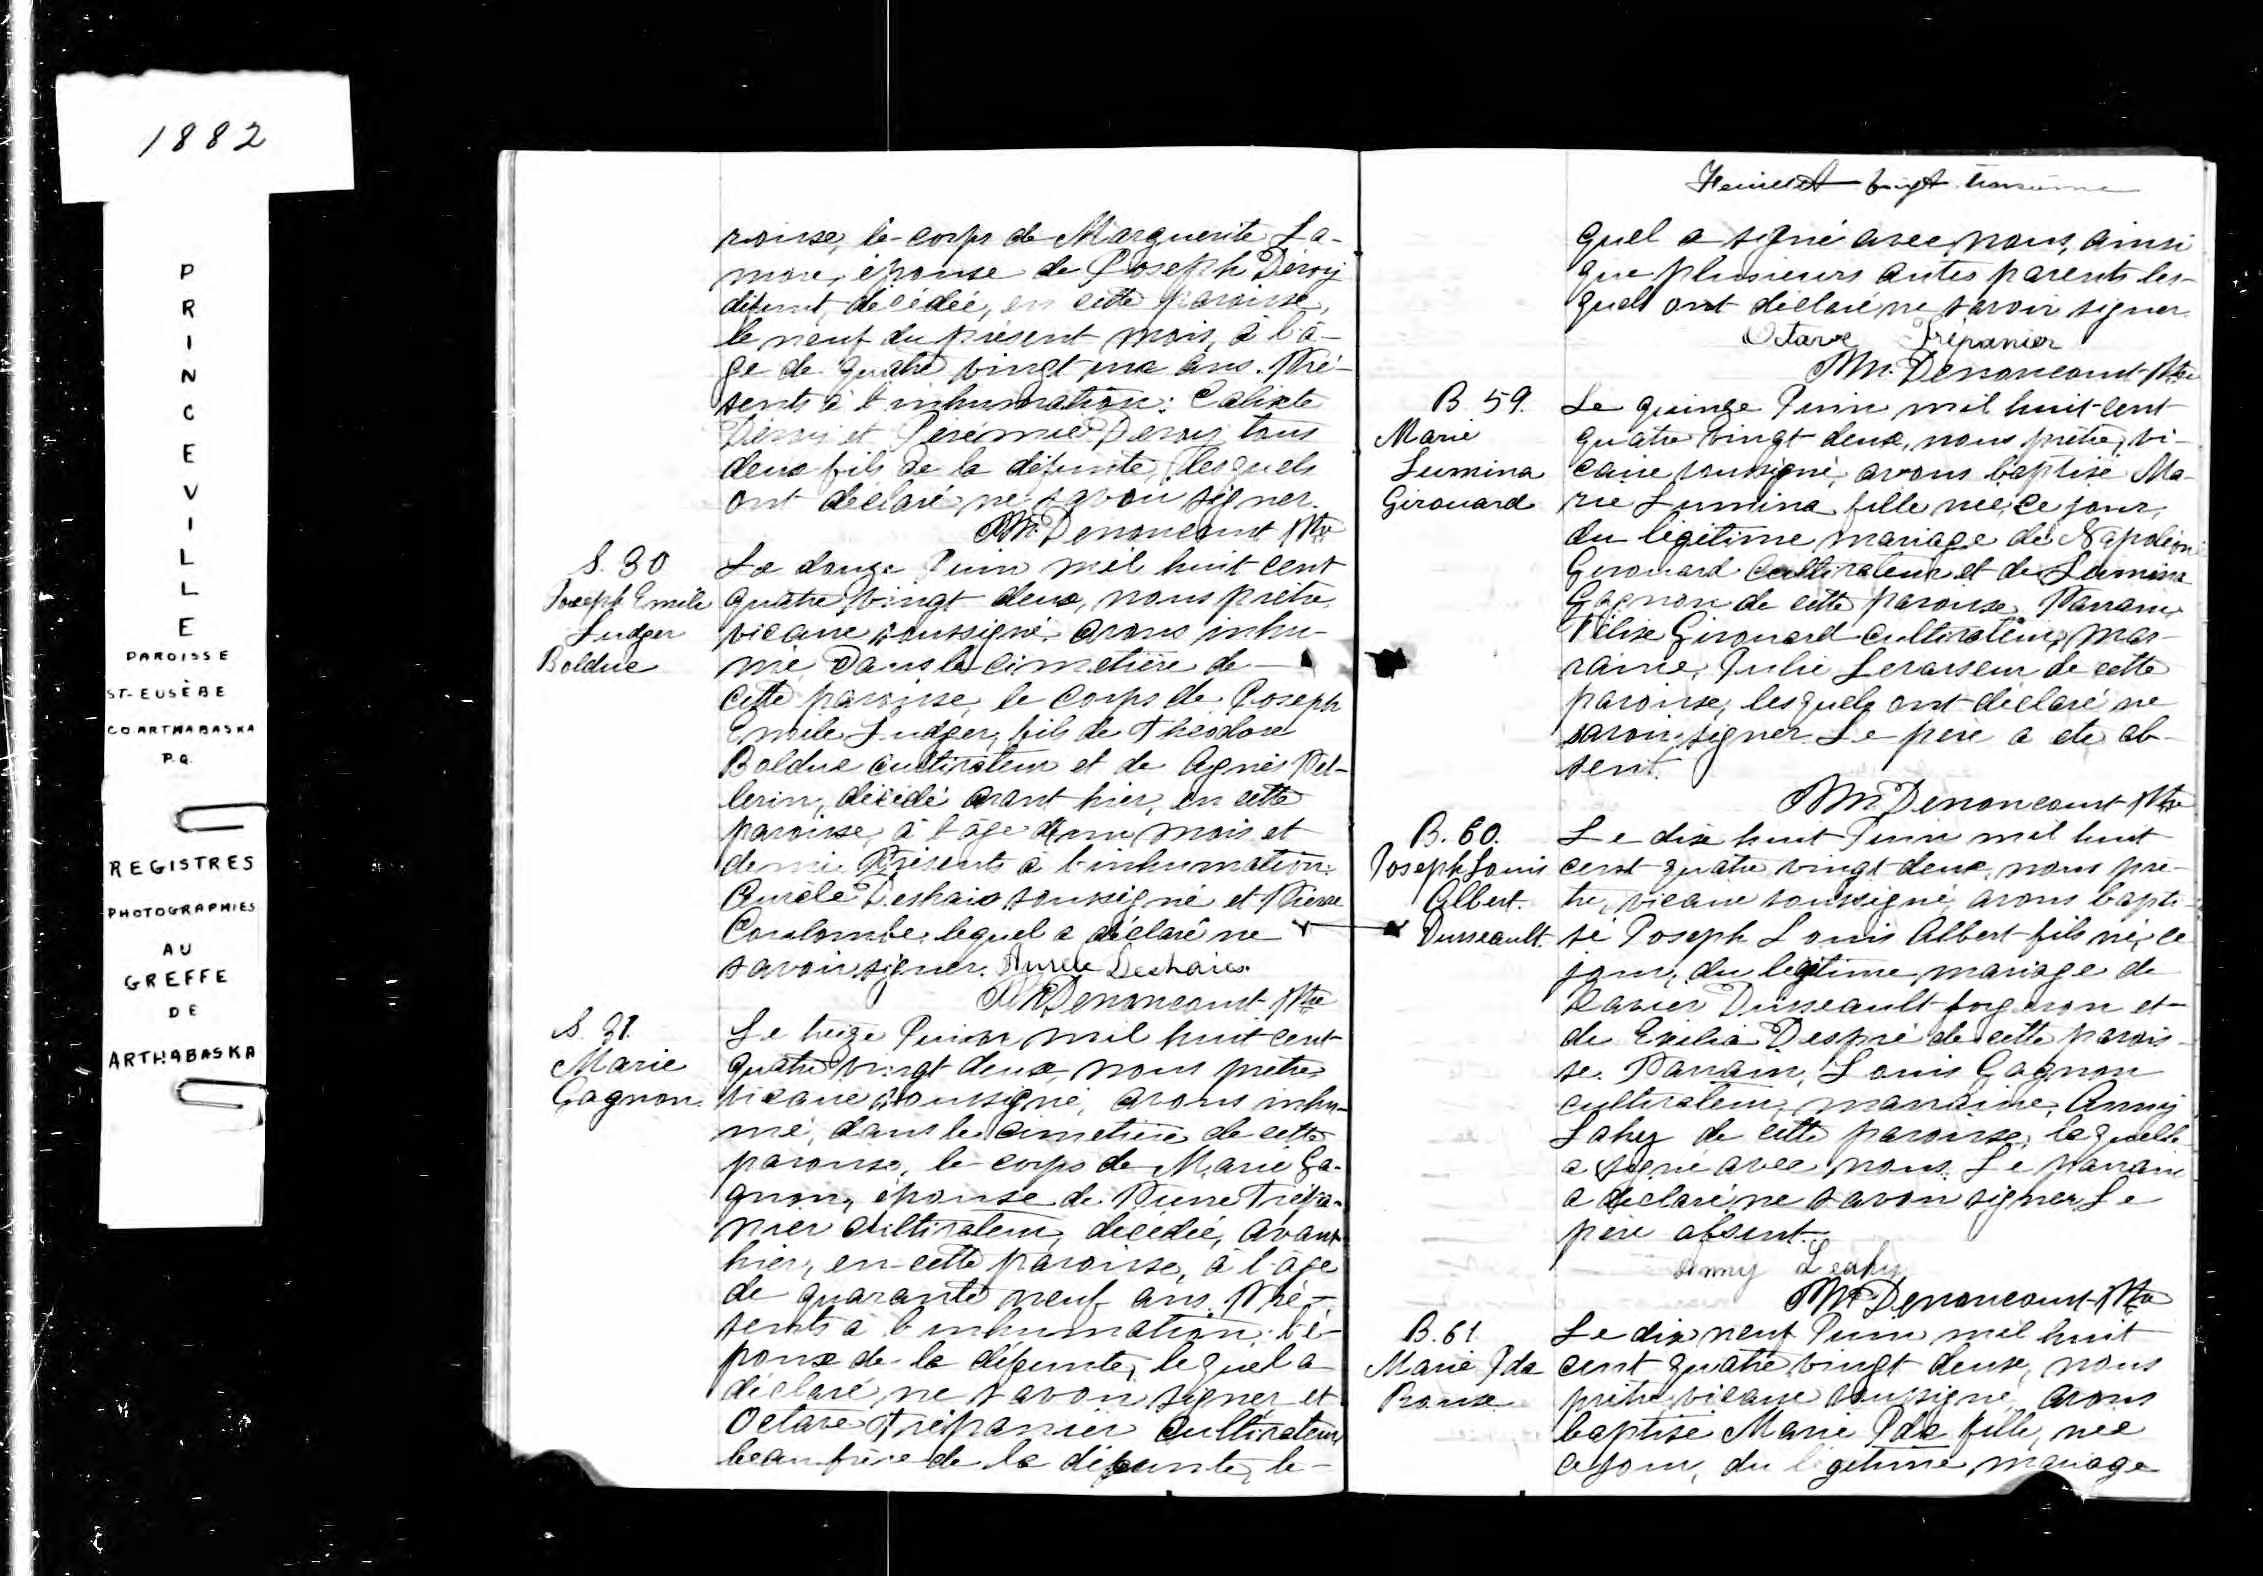 1882
PRINCEVILLE
PAROISSE
ST-EUSÈBE
CO ARTHABASKA
P.Q.
REGISTRES
PHOTOGRAPHIES
AU
GREFFE
DE
ARTHABASKA
roisse, le corps de Marguerite La-
more, épouse de Joseph Deroy
défunt, décédée, en cette paroisse,
le neuf du présent mois, à l'â-
ge de quatre vingt une ans. Pré-
sents à l'inhumation: Calixte
Deroy et Jérémie Deroy tous
deux fils de la défunte, lesquels
ont déclaré ne savoir signer.
Denoncourt Ptre
S. 30
Joseph Emile
Ludger
Bolduc
Le douze Juin mil huit cent
quatre vingt deux, nous prêtre
vicaire soussigné avons inhu-
mé, dans le cimetière de
cette paroisse, le corps de Joseph
Emile Ludger, fils de Théodore
Bolduc cultivateur et de Agnès Pel-
lerin, décédé avant hier, en cette
paroisse, à l'âge d'un mois et
demi. Présents à l'inhumation:
Aurèle Deshaies soussigné et Pierre
Coulombe, lequel a déclaré ne
savoir signer. Aurele Deshaies
Denoncourt Ptre
S. 31.
Marie
Gagnon.
Le treize Juin mil huit cent
quatre vingt deux, nous prêtre
vicaire soussigné, avons inhu-
mé, dans le cimetière de cette
paroisse, le corps de Marie Ga-
gnon, épouse de Pierre Trépa-
nier cultivateur, décédée, avant
hier, en cette paroisse, à l'âge
de quarante neuf ans. Pré-
sents à l'inhumation: l'é-
poux de la défunte, lequel a
déclaré ne savoir signer et
Octave Trépanier cultivateur
beau frère de la défunte, le-
Feuillet vingt troisième
quel a signé avec nous, ainsi
que plusieurs autes parents les-
quel ont déclaré ne savoir signer.
Octave Trépanier
Denoncourt Ptre
B 59.
Marie
Lumina
Girouard
Le quinze Juin mil huit cent
quatre vingt deux, nous prêtre, vi-
caire soussigné, avons baptisé Ma-
rie Lumina fille née, ce jour,
du légitime mariage de Napoléon
Girouard cultivateur et de Lumina
Gagnon de cette paroisse. Parrain,
Félix Girouard cultivateur, mar-
raine, Julie Levasseur de cette
paroisse, lesquels ont déclaré ne
savoir signer. Le père a été ab-
sent.
Denoncourt Ptre
B. 60.
Joseph Louis
Albert.
Dusseault.
Le dix huit Juin mil huit
cent quatre vingt deux, nous prê-
tre, vicaire soussigné, avons bapti-
sé Joseph Louis Albert fils né, ce
jour, du légitime mariage de
Xavier Dusseault forgeron et
de Exilia Despré de cette parois-
se. Parrain, Louis Gagnon
cultivateur, marraine, Anny
Lahey de cette paroisse, laquelle
a signé avec nous. Le parrain
a déclaré ne savoir signer. Le
père absent.
Anny Leahy
Denoncourt Ptre
B. 61.
Marie Ida
Le dix neuf Juin mil huit
cent quatre vingt deux, nous
prêtre vicaire soussigné, avons
baptisé Marie Ida fille, née
ce jour, du légitime mariage